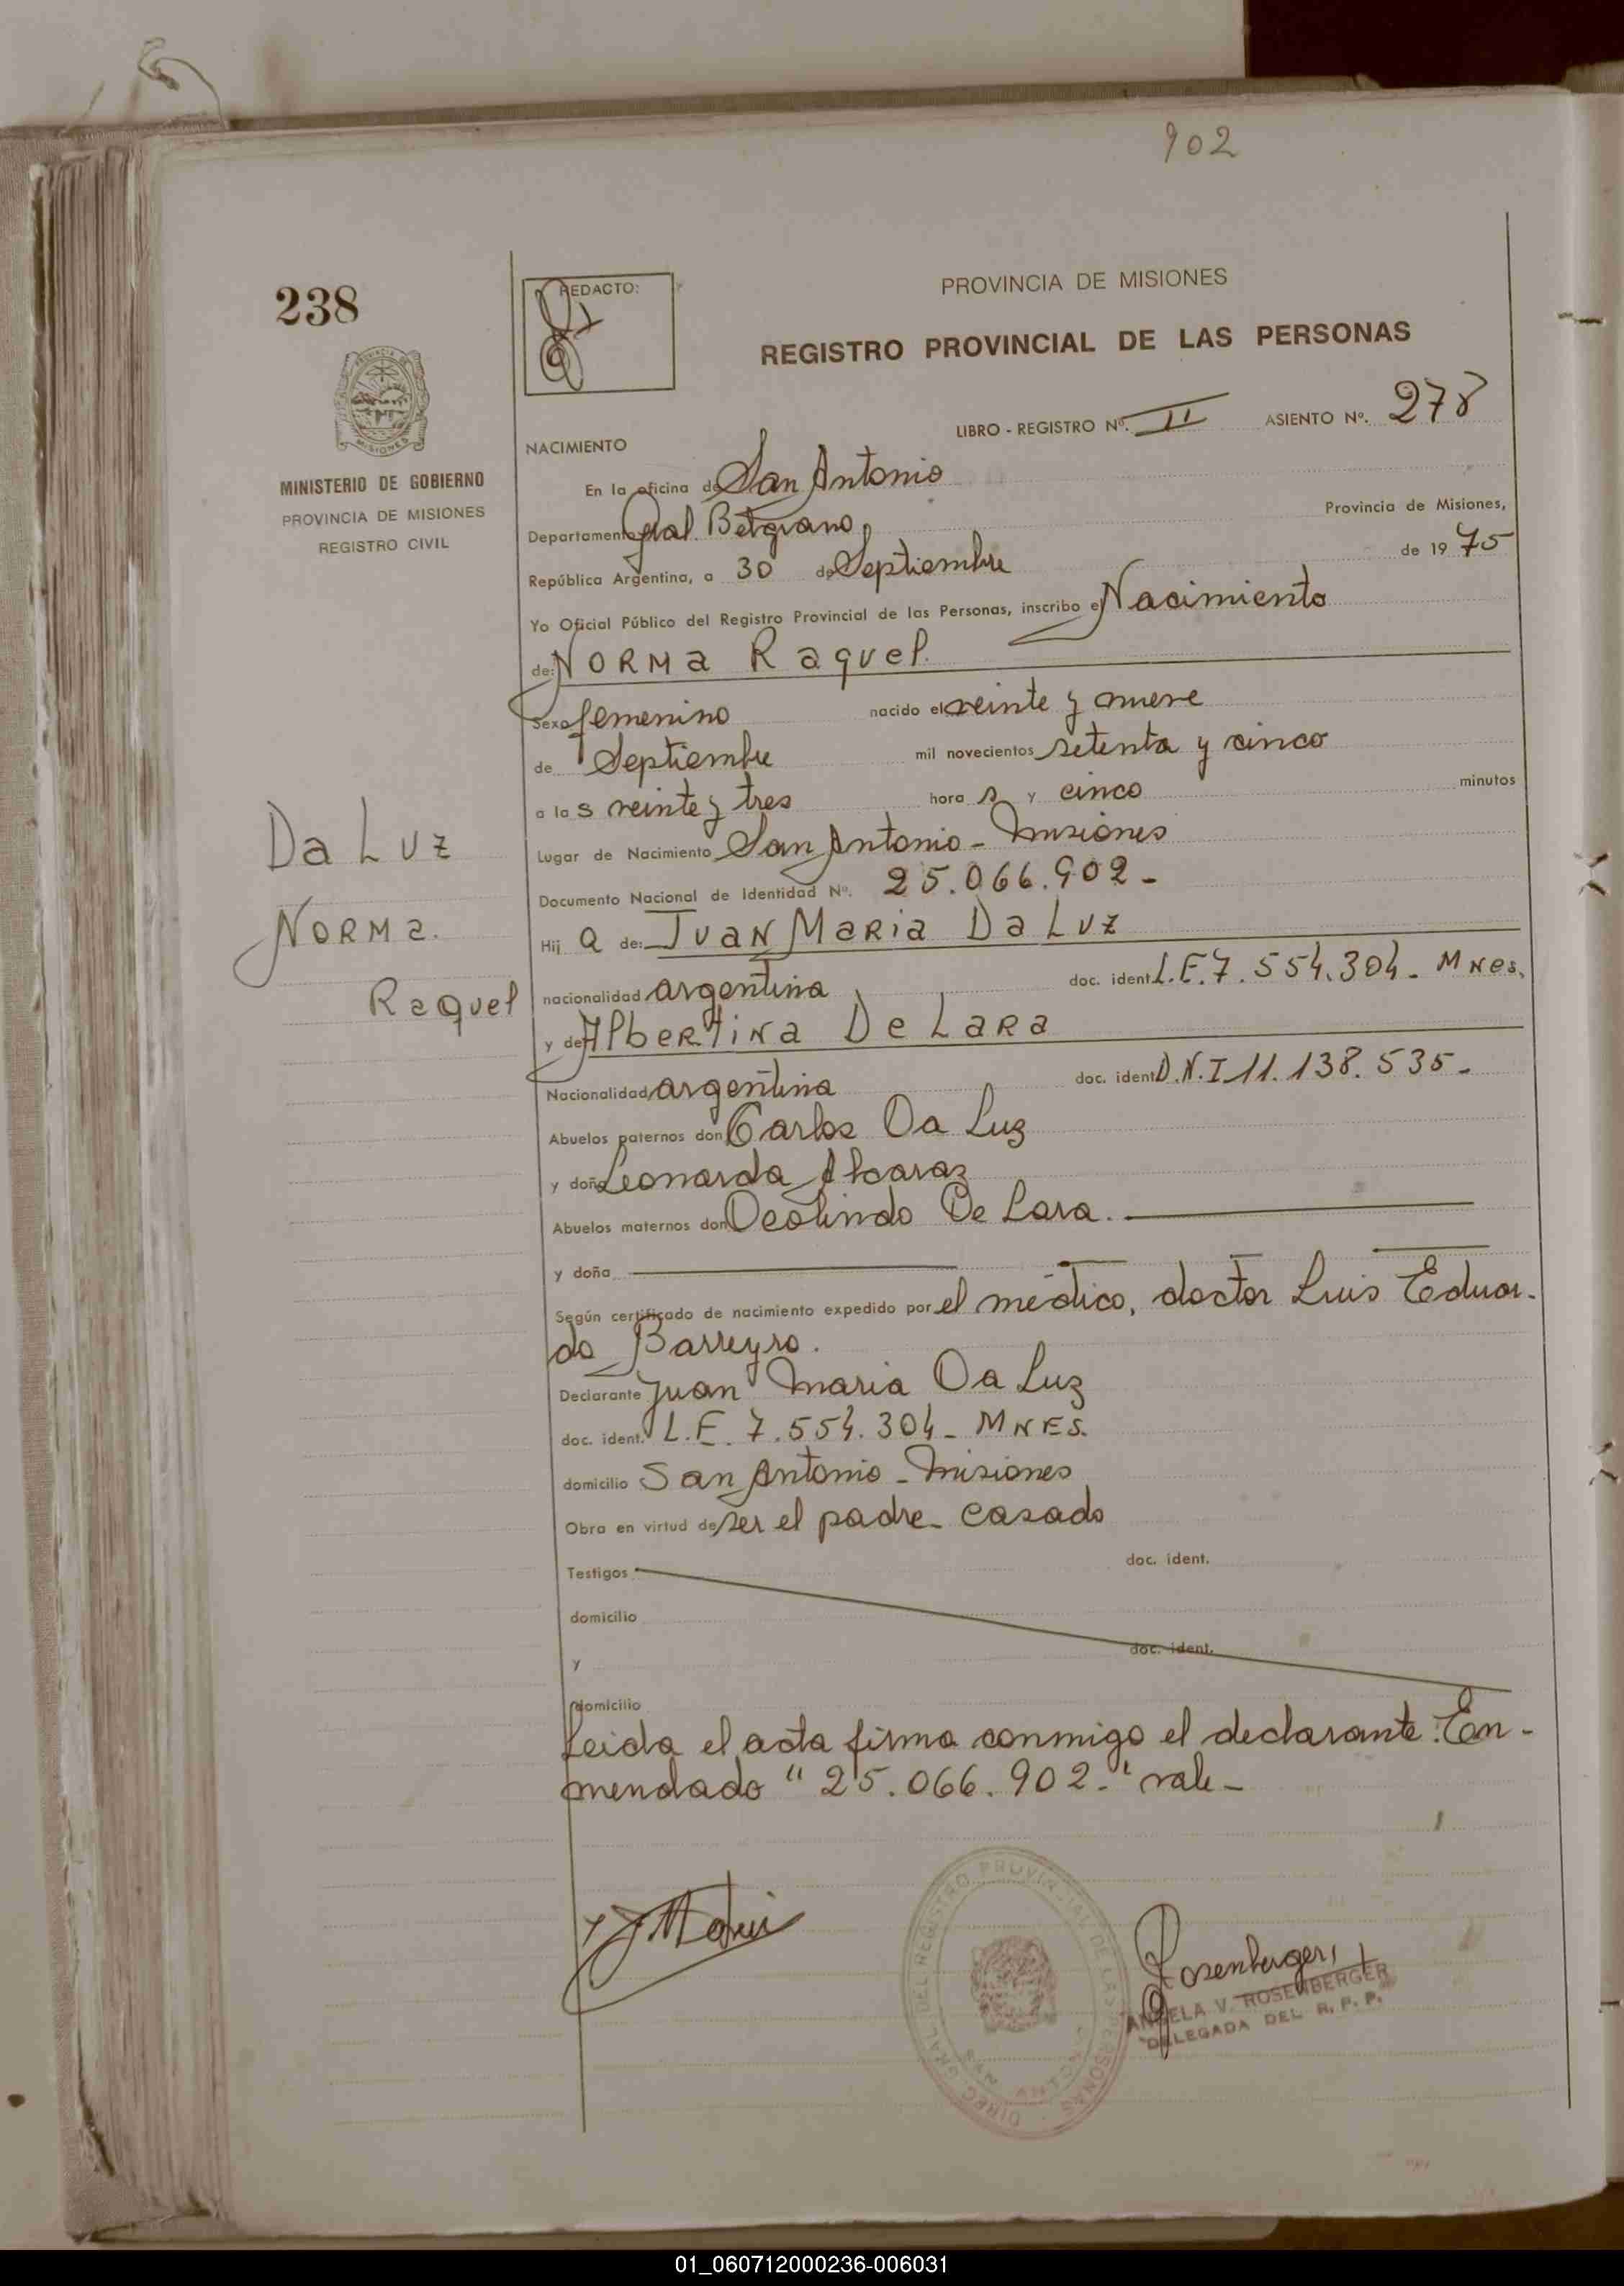 902
238
REDACTO:
PROVINCIA DE MISIONES
REGISTRO PROVINCIAL DE LAS PERSONAS
MINISTERIO DE GOBIERNO
PROVINCIA DE MISIONES
REGISTRO CIVIL
LIBRO - REGISTRO Nº. II ASIENTO Nº. 278
NACIMIENTO
En la oficina de San Antonio
Departamento Gral. Belgrano Provincia de Misiones,
República Argentina, a 30 de Septiembre de 1975
Yo Oficial Público del Registro Provincial de las Personas, inscribo el Nacimiento
de: NORMA Raquel.
Sexo femenino nacido el veinte y nueve
de Septiembre mil novecientos setenta y cinco
a las veinte y tres horas y cinco minutos
Lugar de Nacimiento San Antonio - Misiones
Documento Nacional de Identidad Nº. 25.066.902-
Hija de: JUAN MARIA Da LUZ
nacionalidad argentina doc. ident. L.E. 7.554.304- MNes.
y de Albertina De Lara
Nacionalidad argentina doc. ident. D.N.I 11.138.535-
Abuelos paternos don Carlos Da Luz
y doña Leonarda Alcaraz
Abuelos maternos don Deolindo De Lara.
y doña
Según certificado de nacimiento expedido por el médico, doctor Luis Eduar-
do Barreyro.
Declarante Juan Maria Da Luz
doc. ident. L.E. 7.554.304- MNES.
domicilio San Antonio - Misiones
Obra en virtud de ser el padre- casado
Testigos doc. ident.
domicilio
y doc. ident.
domicilio
Leida el acta firma conmigo el declarante. En-
mendado "25.066.902-" vale-
Da LUZ
NORMA.
Raquel
DIREC. GRAL. DEL REGISTRO PROVINCIAL DE LAS PERSONAS
Rosenberger
ANGELA V. ROSENBERGER
DELEGADA DEL R. P. P.
01_060712000236-006031